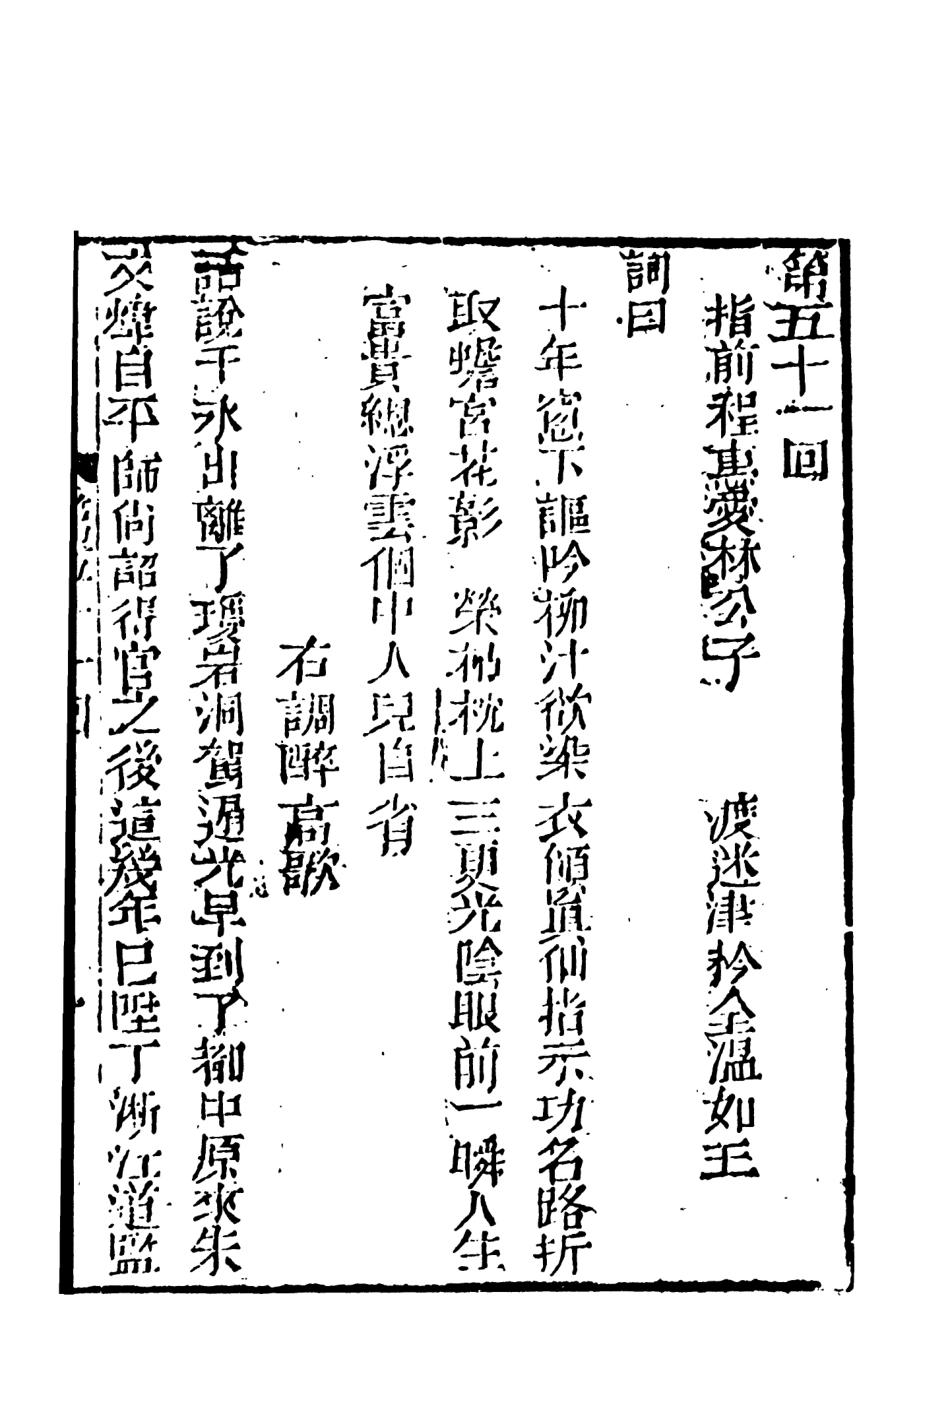 第五十一回
指前程惠愛林公子　渡迷津矜全溫如玉
詞曰
十年窓下謳吟柳汁欲染衣傾道仙指示功名路折
取蟾宮花影　榮枯枕上三更光陰眼前一瞬人生
富貴總浮雲個中人兒自省
右調醉高歌
話說于冰出離了瓊岩洞駕遁光早到了都中原來朱
文煒自平師尚詔得官之後這幾年已陞了浙江道監